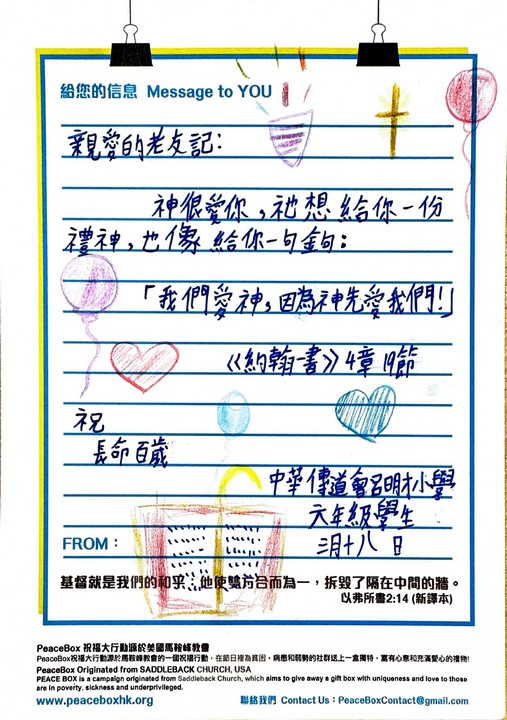 給您的信息 Message to YOU
親愛的老友記：
神很愛你，祂想給你一份
禮神，也像給你一句鉤：
「我們愛神，因為神先愛我們！」
《約翰一書》4章19節
祝
長命百歲
中華傳道會呂明才小學
六年級學生
三月十八日
FROM：
基督就是我們的和平：他使雙方合而為一，拆毀了隔在中間的牆。
以弗所書2:14 (新譯本)
PeaceBox 祝福大行動源於美國馬鞍峰教會
PeaceBox祝福大行動源於馬鞍峰教會的一個祝福行動，在節日裡為貧困，病患和弱勢的社群送上一盒獨特，富有心意和充滿愛心的禮物!
PeaceBox Originated from SADDLEBACK CHURCH, USA
PEACE BOX is a campaign originated from Saddleback Church, which aims to give away a gift box with uniqueness and love to those
are in poverty, sickness and underprivileged.
www.peaceboxhk.org 聯絡我們 Contact Us：PeaceBoxContact@gmail.com